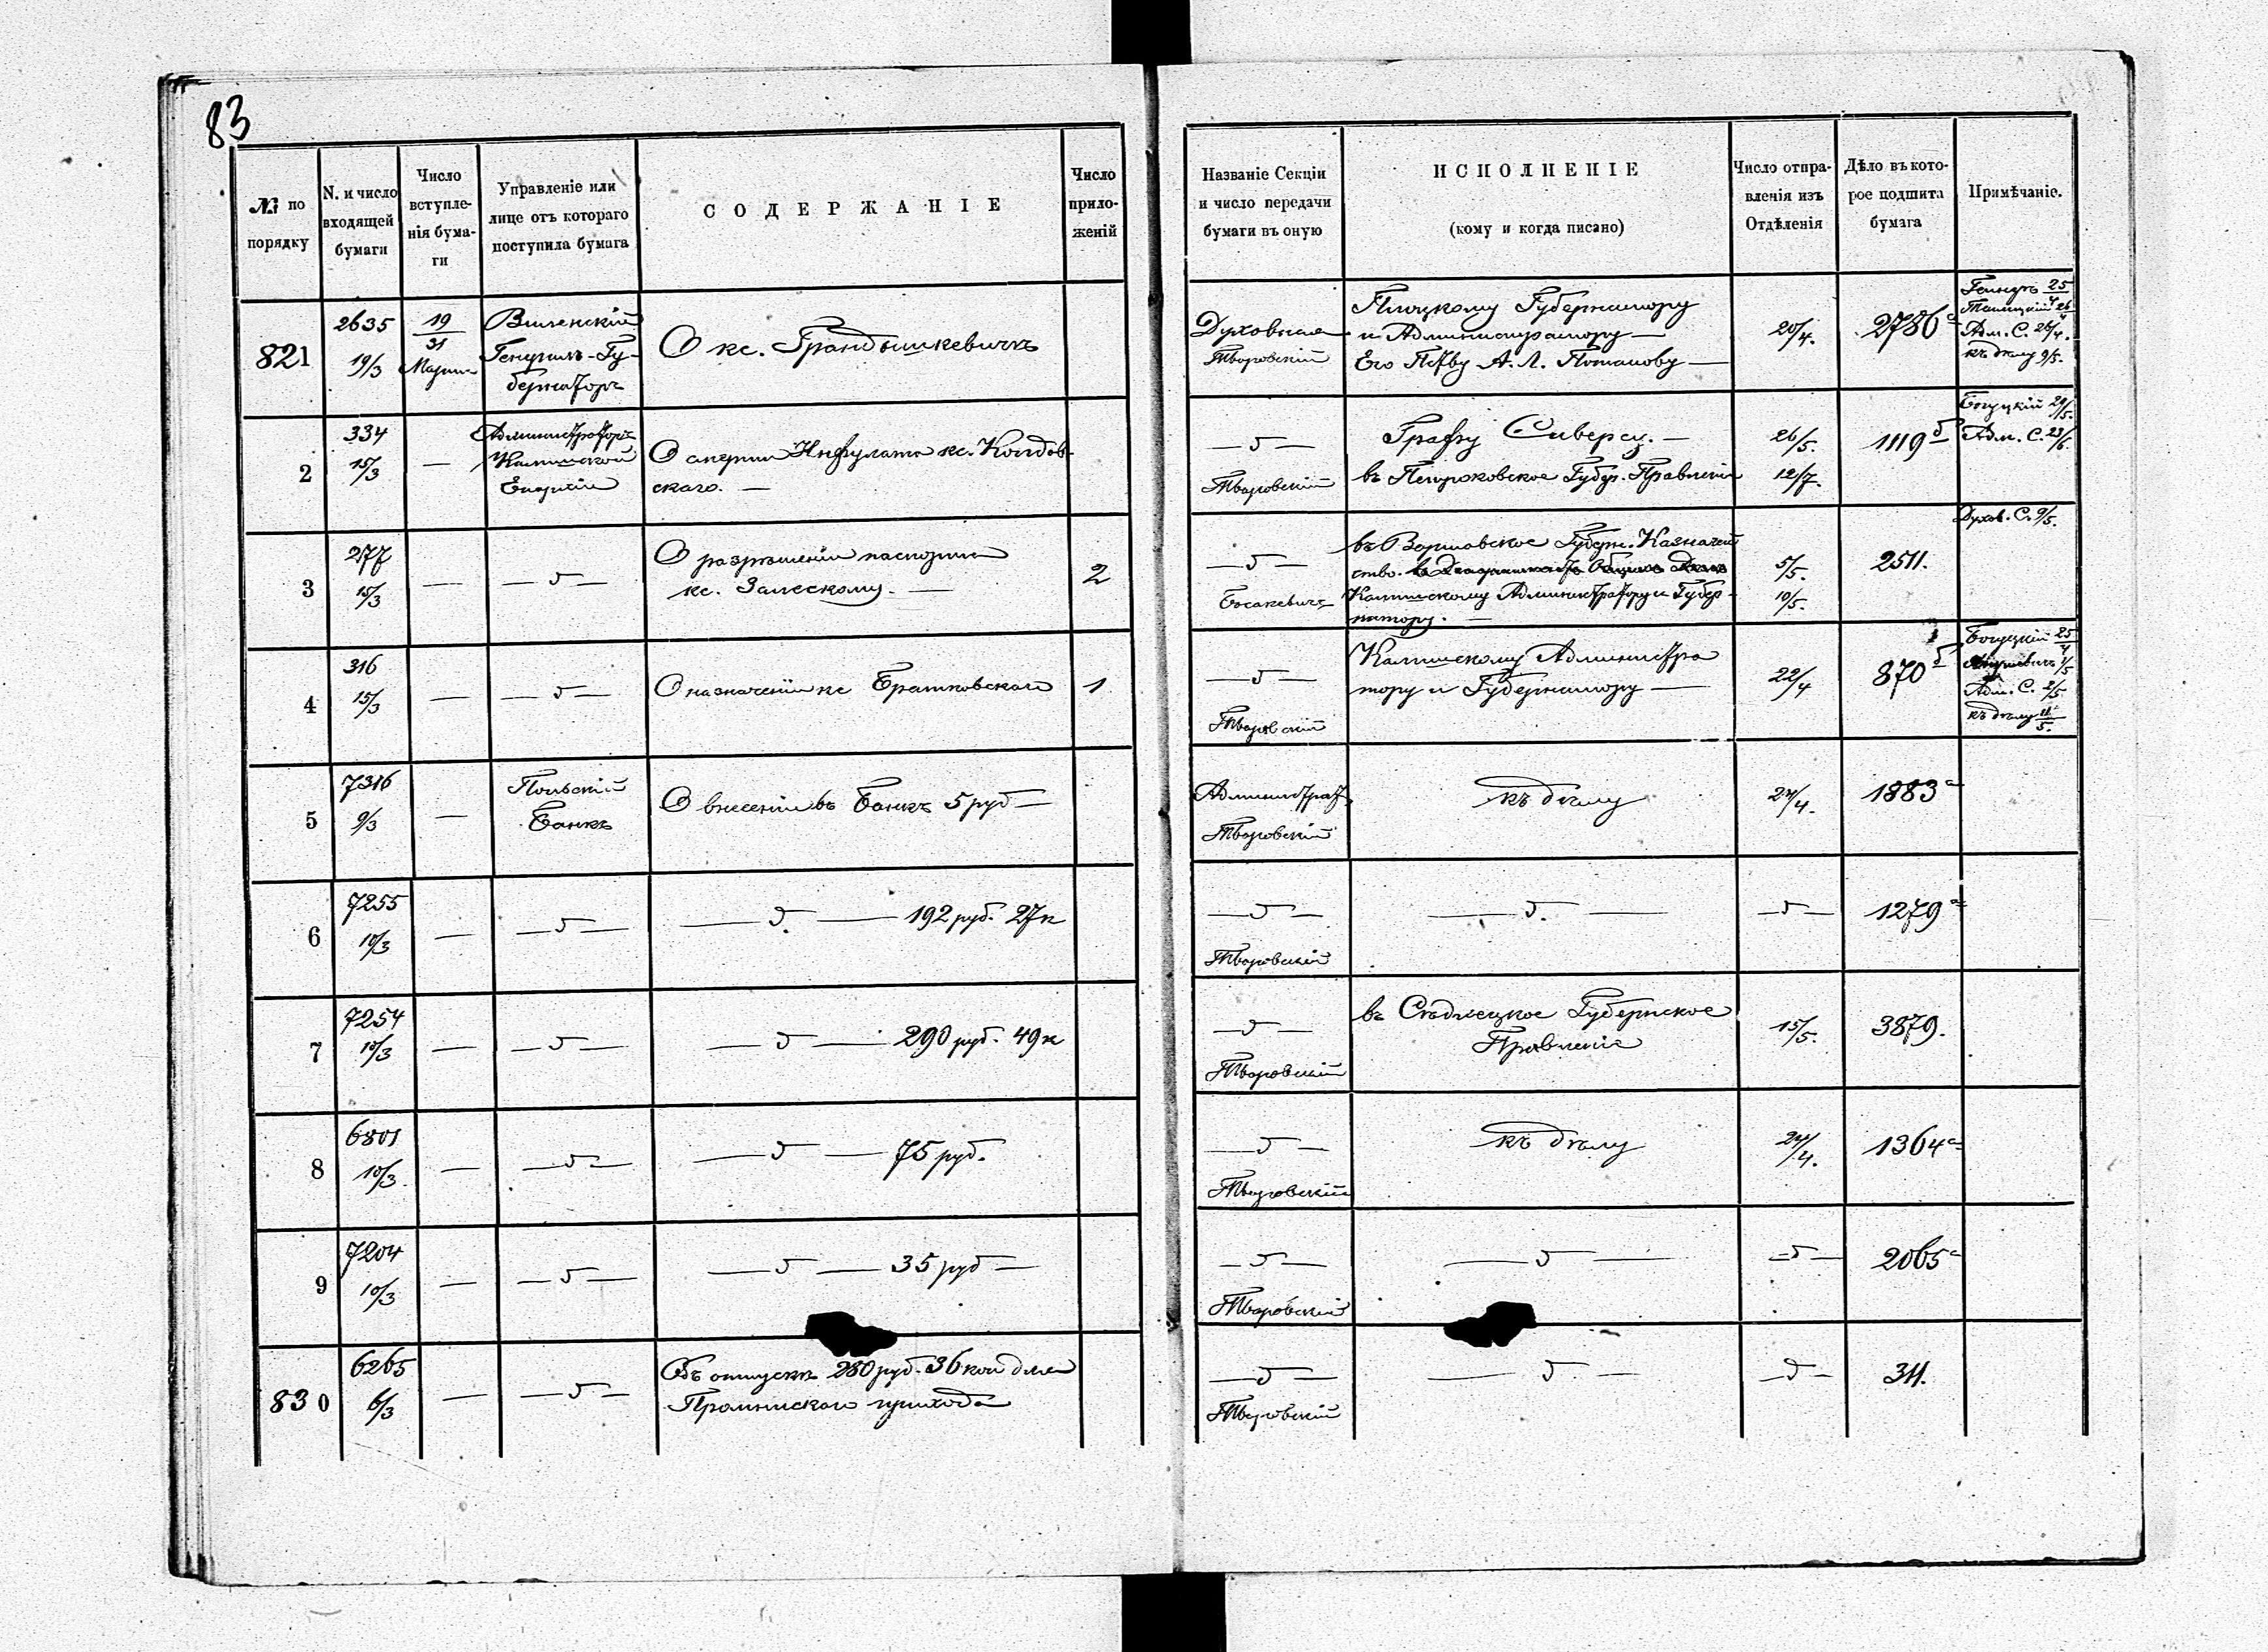 83
№ по порядку
N. и число входящей бумаги
Число вступле-
нія бума-
ги
Управленіе или
лице отъ котораго
поступила бумага
СОДЕРЖАНІЕ
Число
прило-
женій
Названіе Секціи
и число передачи
бумаги въ оную
ИСПОЛНЕНІЕ
(кому и когда писано)
Число отпра-
вленія изъ
Отдѣленія
Дѣло въ кото-
рое подшита
бумага
Примѣчаніе.
821
2635
19/3
19/31
Марта
Виленскій
Генералъ-Гу-
бернаторъ
О кс. Грандышкевичѣ
Духовная
Тваровскій
Плоцкому Губернатору
и Администратору —
Его Пр-ву А. Л. Потапову —
20/4.
2786 а
25/4
26/4
Адм. С. 26/4.
къ дѣлу 9/5.
2
334
15/3
—
Администраторъ
Калишской
Епархіи
О смерти Инфулата кс. Колдов-
скаго. —
— д —
Тваровскій
Графу Сиверсу. —
въ Петроковское Губер. Правленіе
26/5.
12/7.
1119 б
Богуцкій 29/5.
Адм. С. 23/6.
3
277
15/3
—
— д —
О разрѣшеніи паспорта
кс. Залескому. —
2
— д —
Босакевичъ
въ Варшавское Губерн. Казначей
ство.
Калишскому Администратору и Губер-
натору. —
5/5.
10/5.
2511.
Духов. С. 9/5.
4
316
15/3
—
— д —
О назначеніи кс Братковскаго
1
— д —
Тваровскій
Калишскому Администра
тору и Губернатору —
22/4
870 б
Богуцкій 25/4
Адм. С. 2/5.
къ дѣлу 11/5.
5
7316
9/3
—
Польскій
Банкъ
О внесеніи въ Банкъ 5 руб —
Администрат.
Тваровскій
къ дѣлу
24/4.
1883 а
6
7255
10/3
—
— д —
— д — 192 руб. 27 к
— д —
Тваровскій
— д. —
— д —
1279 а
7
7254
10/3
—
— д —
— д — 290 руб. 49 к
— д —
Тваровскій
въ Сѣдлецкое Губернское
Правленіе
15/5.
3879.
8
6801
10/3
—
— д —
— д — 75 руб.
— д —
Тваровскій
къ дѣлу
24/4.
1364 а
9
7204
10/3
—
— д —
— д — 35 руб —
— д —
Тваровскій
— д —
— д —
2065 а
830
6265
6/3
—
— д —
Объ отпускѣ 280 руб. 36 коп для
прихода
— д —
Тваровскій
— д —
— д —
311.